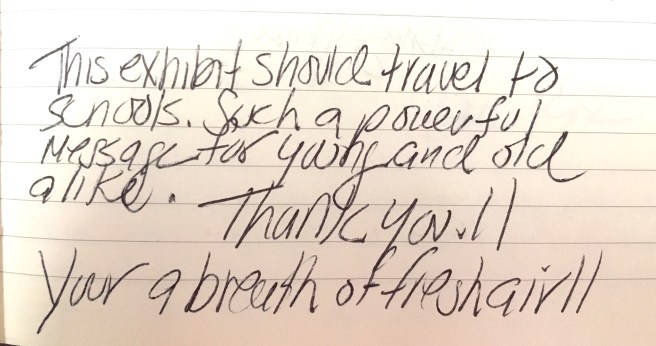 This exhibit should travel to
schools. Such a powerful
message for young and old
alike.
Thank you.!!
Your a breath of fresh air!!